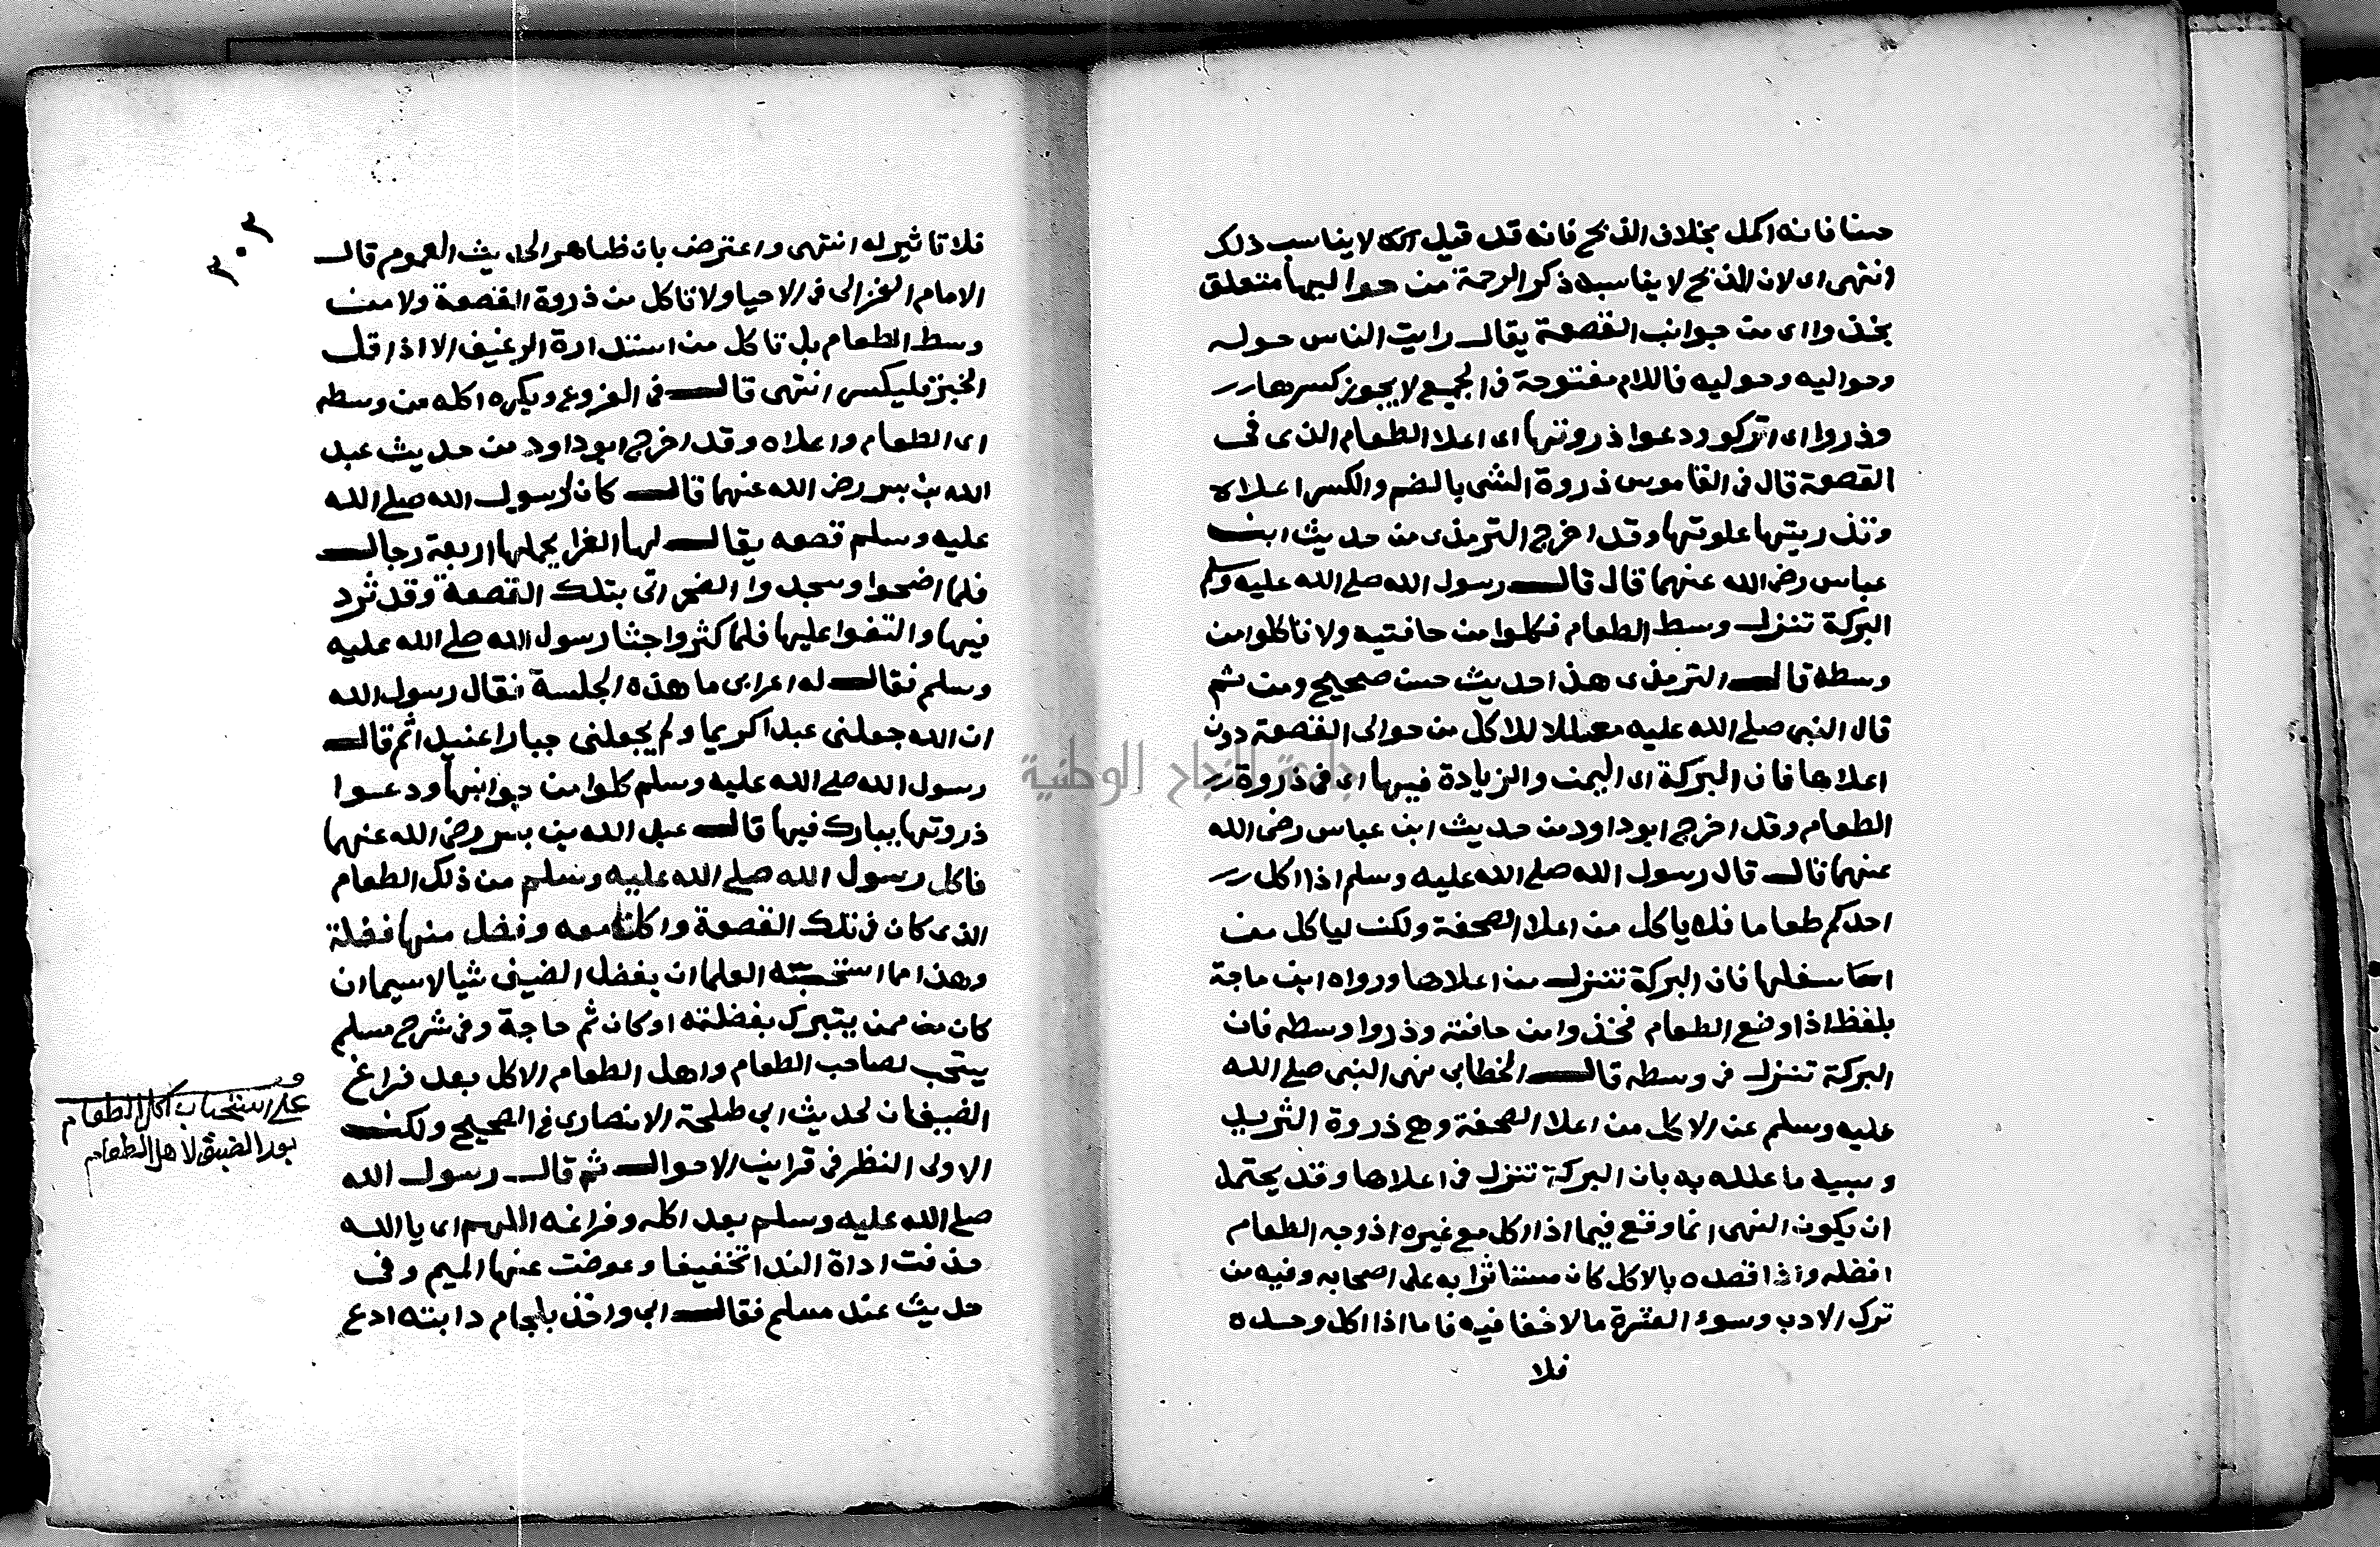 هنا فانه اكمل بخلاف الذبح فانه قد قيل انه لا يناسب ذلك
انتهى اى لان الذبح لا يناسبه ذكر الرحمة من حواليها متعلق
بخذوا اى من جوانب القصعة يقال رايت الناس حوله
وحواليه وحوليه فاللام مفتوحة فى الجميع لا يجوز كسرها
وذروا اى اتركو ودعوا ذروتها اى اعلا الطعام الذى فى
القصعة قال فى القاموس ذروة الشى بالضم والكسر اعلاه
وتذريتها علوتها وقد اخرج الترمذى من حديث ابن
عباس رضى الله عنهما قال قال رسول الله صلى الله عليه وسلم
البركة تنزل وسط الطعام فكلوا من حافتيه ولا تاكلوا من
وسطه قال الترمذى هذا حديث حسن صحيح ومن ثم
قال النبى صلى الله عليه معللا للاكل من حوالى القصعة دون
اعلاها فان البركة اى اليمن والزيادة فيها اى فى ذروة
الطعام وقد اخرج ابو داود من حديث ابن عباس رضى الله
عنهما قال قال رسول الله صلى الله عليه وسلم اذا اكل
احدكم طعاما فلا ياكل من اعلا الصحفة ولكن لياكل من
اسفلها فان البركة تنزل من اعلاها ورواه ابن ماجة
بلفظ اذا وضع الطعام فخذوا من حافته وذروا وسطه فان
البركة تنزل فى وسطه قال الخطابى نهى النبى صلى الله
عليه وسلم عن الاكل من اعلا الصحفة وهى ذروة الثريد
وسببه ما علله به بان البركة تنزل فى اعلاها وقد يحتمل
ان يكون النهى انما وقع فيما اذا اكل مع غيره اذ وجه الطعام
افضله واذا قصده بالاكل كان مستاثرا به على اصحابه وفيه من
ترك الادب وسوء العشرة ما لا خفا فيه فاما اذا اكل وحده
فلا
٣٠٣
فلا تاثير له انتهى واعترض بان ظاهر الحديث العموم قال
الامام الغزالى فى الاحيا ولا تاكل من ذروة القصعة ولا من
وسط الطعام بل تاكل من استدارة الرغيف الا اذا قل
الخبز فليكسر انتهى قال فى الفروع ويكره اكله من وسطه
اى الطعام واعلاه وقد اخرج ابو داود من حديث عبد
الله بن بسر رضى الله عنهما قال كان لرسول الله صلى الله
عليه وسلم قصعه يقال لها الغرا يحملها اربعة رجال
فلما اضحوا وسجدوا الضحى اتى بتلك القصعة وقد ثرد
فيها والتفوا عليها فلما كثروا جثا رسول الله صلى الله عليه
وسلم فقال له اعرابى ما هذه الجلسة فقال رسول الله
ان الله جعلنى عبدا كريما ولم يجعلنى جبارا عنيدا ثم قال
رسول الله صلى الله عليه وسلم كلوا من جوانبها ودعوا
ذروتها يبارك فيها قال عبد الله بن بسر رضى الله عنهما
فاكل رسول الله صلى الله عليه وسلم من ذلك الطعام
الذى كان فى تلك القصعة واكلنا معه وفضل منها فضلة
وهذا مما استحبته العلما ان يفضل الضيف شيا لا سيما ان
كان من ممن يتبرك بفضلته او كان ثم حاجة وفى شرح مسلم
يستحب لصاحب الطعام واهل الطعام الاكل بعد فراغ
الضيفان لحديث ابى طلحة الانصارى فى الصحيح ولكن
الاولى النظر فى قراين الاحوال ثم قال رسول الله
صلى الله عليه وسلم بعد اكله وفراغه اللهم اى يا الله
حذفت اداة الندا تخفيفا وعوضت عنها الميم وفى
حديث عند مسلم فقال ابى واخذ بلجام دابته ادع
على استحباب اكل الطعام
بعد الضيق لاهل الطعام
جامعة النجاح الوطنية